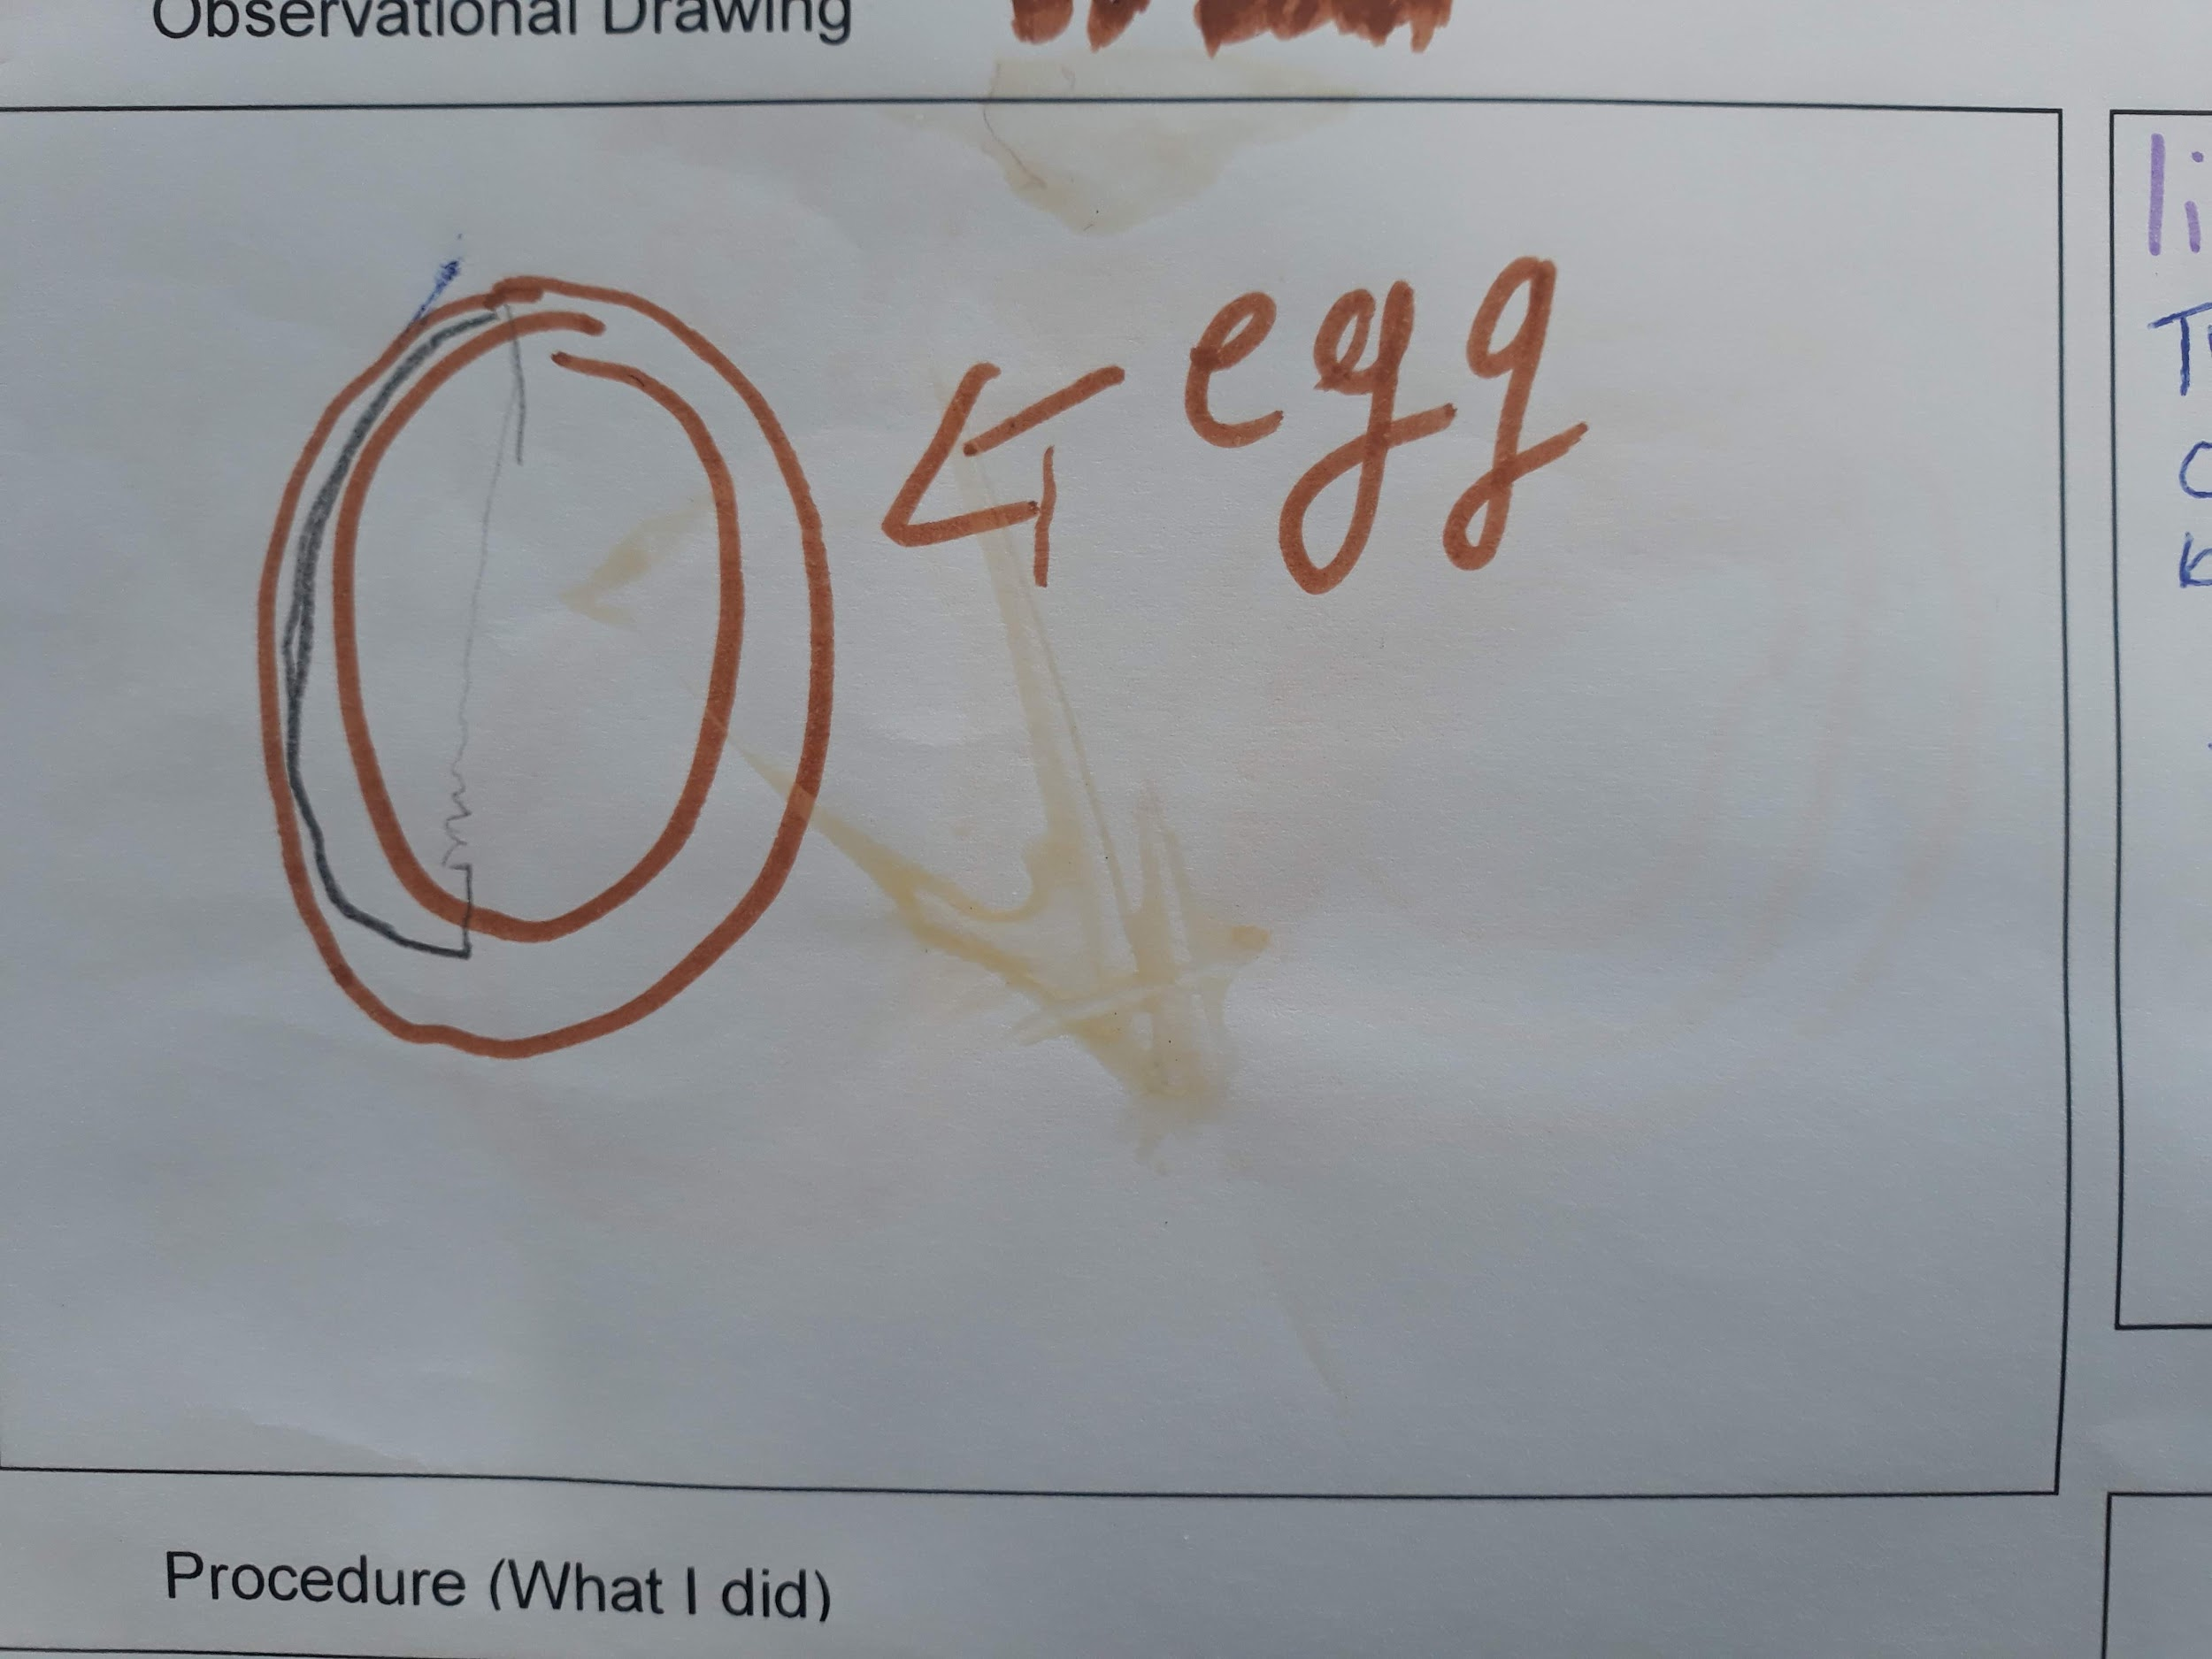 Observational Drawing
egg
Procedure (What I did)